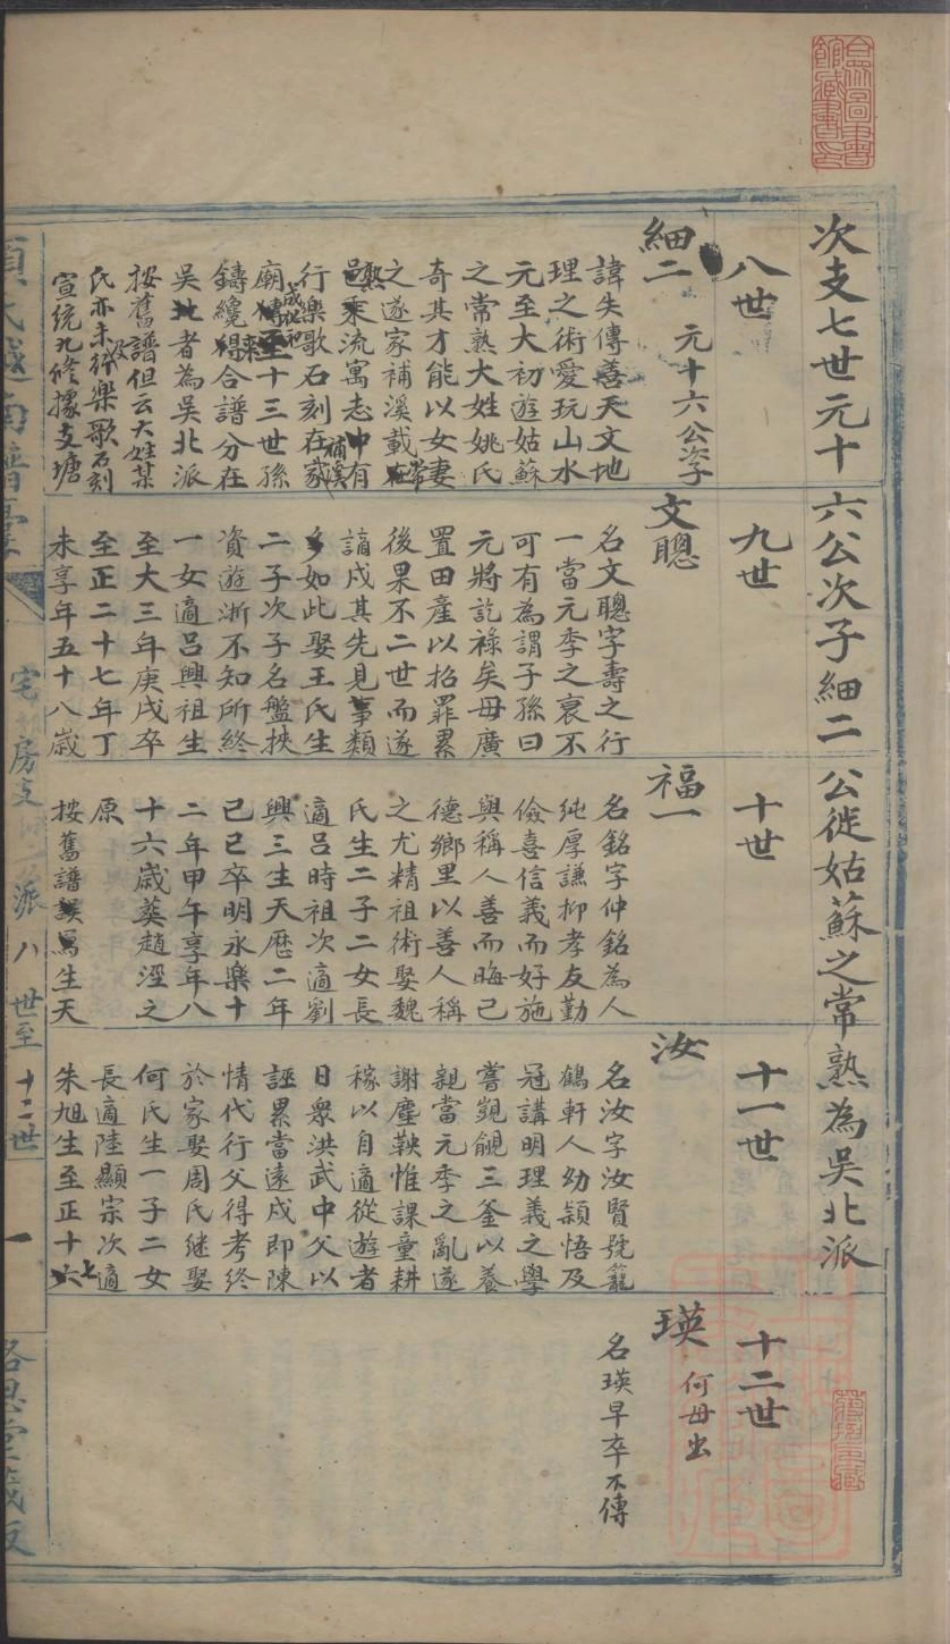 次支七世元十六公次子細二公徙姑蘇之常熟為吳北派
八世
細二
元十六公次子
諱失傳善天文地
理之術愛玩山水
元至大初遊姑蘇
之常熟大姓姚氏
奇其才能以女妻
之遂家補溪載在常
熟邑乘流寓志中有
行樂歌石刻在補溪家
廟成化和十三世孫
鑄纔得合譜分在
吳北者為吳北派
按舊譜但云大姓某
氏亦未敘樂歌石刻
宣統九修據支塘
九世
文聰
名文聰字壽之行
一當元季之衰不
可有為謂子孫曰
元將訖祿矣毋廣
置田產以招罪累
後果不二世而遂
謫戍其先見事類
多如此娶王氏生
二子次子名盤挾
資遊浙不知所終
一女適呂興祖生
至大三年庚戌卒
至正二十七年丁
未享年五十八歲
十世
福一
名銘字仲銘為人
純厚謙抑孝友勤
儉喜信義而好施
與稱人善而晦己
德鄉里以善人稱
之尤精祖術娶魏
氏生二子二女長
適呂時祖次適劉
興三生天曆二年
己巳卒明永樂十
二年甲午享年八
十六歲葬趙涇之
原
按舊譜誤寫生天
十一世
汝一
名汝字汝賢號籠
鶴軒人幼穎悟及
冠講明理義之學
嘗覬覦三釜以養
親當元季之亂遂
謝塵鞅惟課童耕
稼以自適從遊者
日眾洪武中父以
誣累當遠戍即陳
情代行父得考終
於家娶周氏継娶
何氏生一子二女
長適陸顯宗次適
朱旭生至正十七
十二世
瑛
何母出
名瑛早卒不傳
宅 房支 派 八世至十二世 一